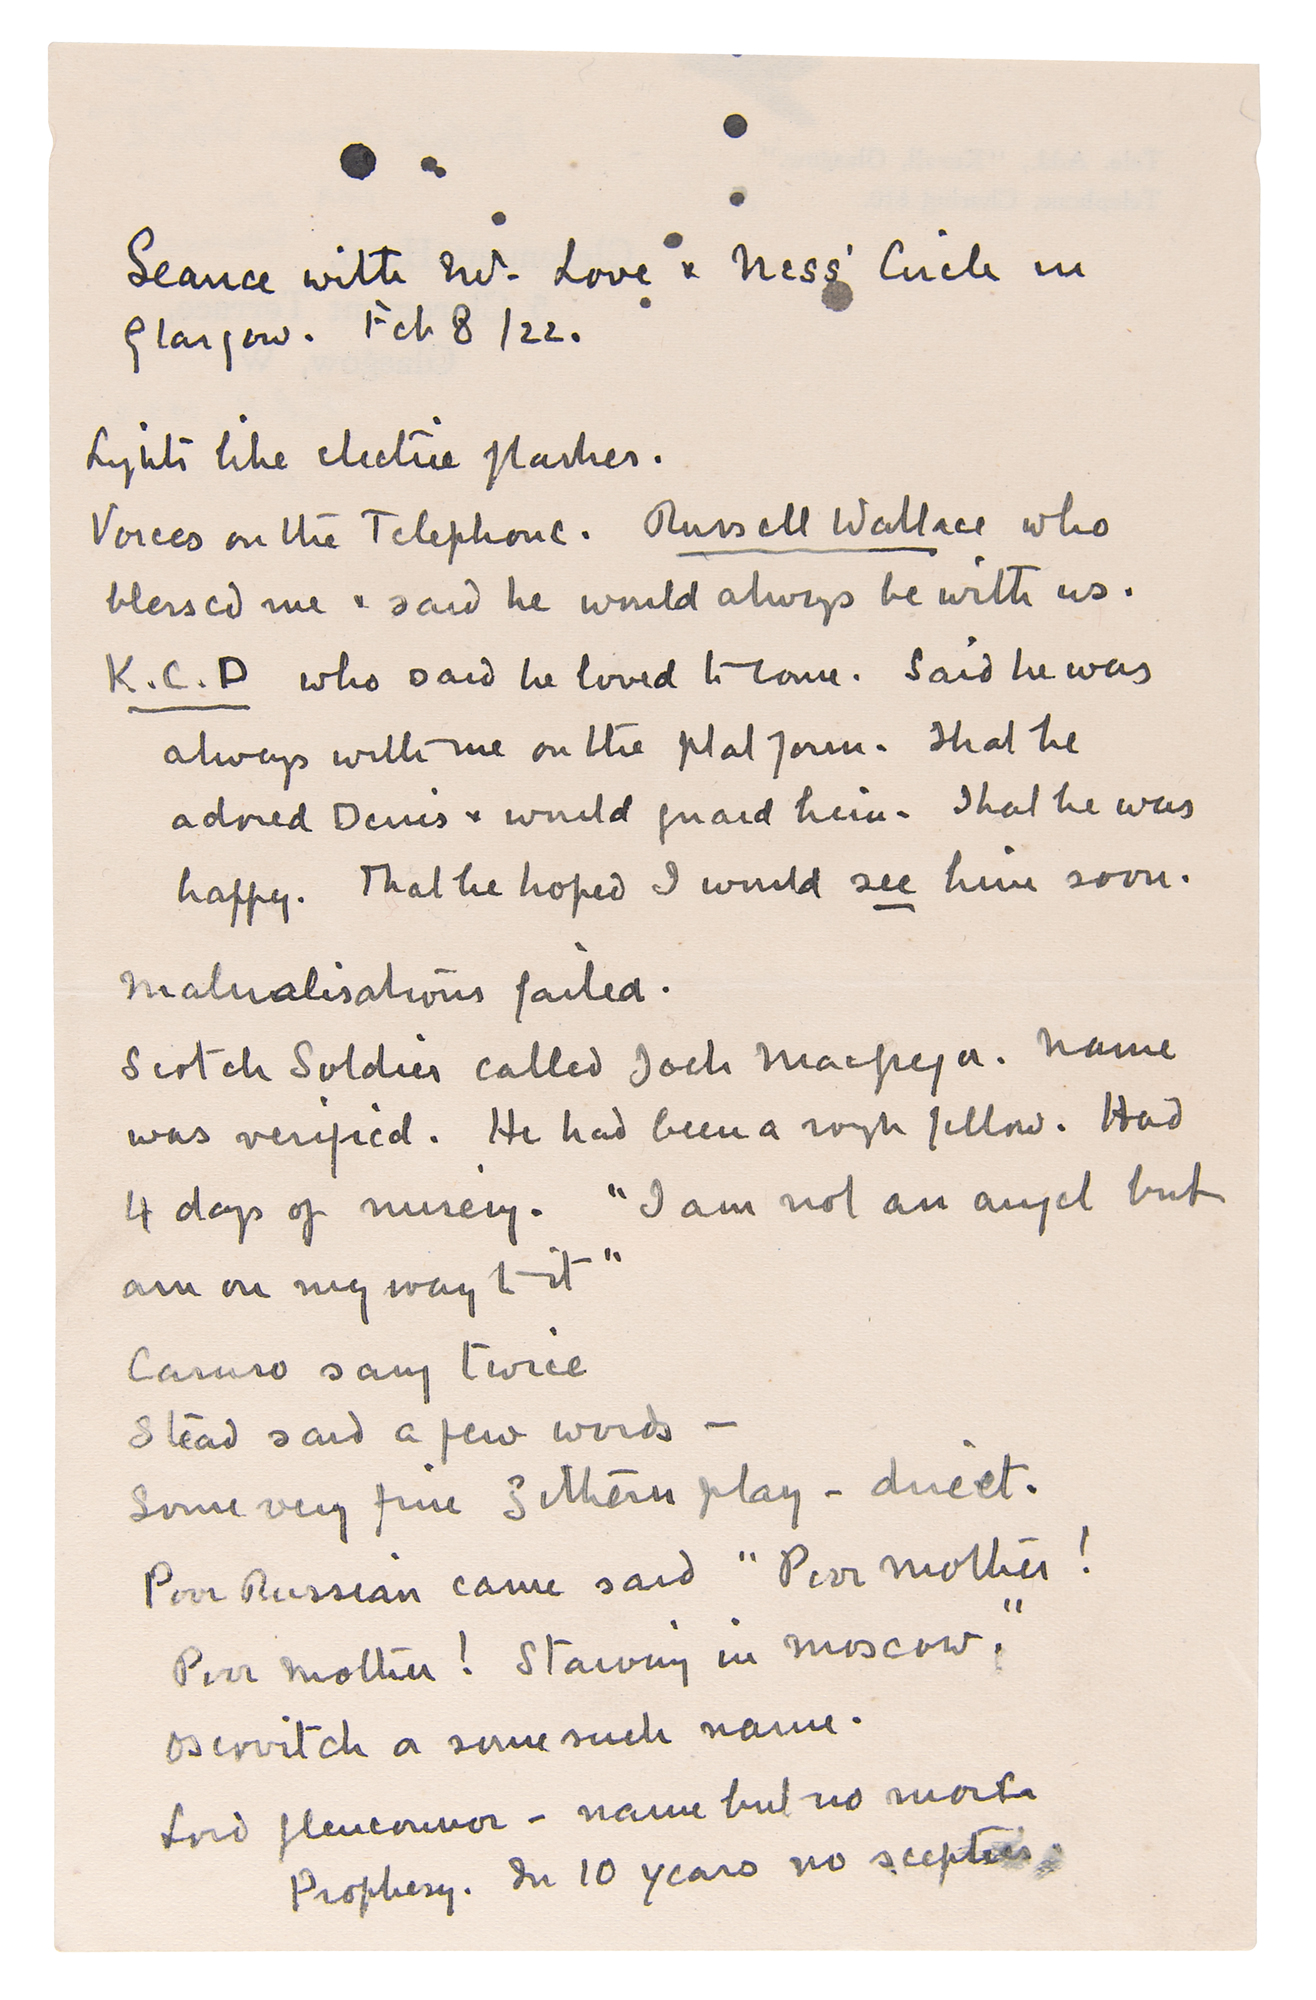 Seance with Mr. Love & Ness' Circle in
Glasgow. Feb 8 /22.
Lights like electric flashes.
Voices on the Telephone. Russell Wallace who
blessed me & said he would always be with us.
K.C.D who said he loved to come. Said he was
always with me on the platform. That he
adored Denis & would guard him. That he was
happy. That he hoped I would see him soon.
Materialisations failed.
Scotch Soldier called Jock Macgregor. Name
was verified. He had been a rough fellow. Had
4 days of misery. "I am not an angel but
am on my way to it"
Caruso sang twice
Stead said a few words –
Some very fine Zithern play – direct.
Poor Russian came said "Poor Mother!
Poor Mother! Starving in Moscow."
Oserovitch or some such name.
Lord Glenconnor – name but no more
Prophesy. In 10 years no sceptics.